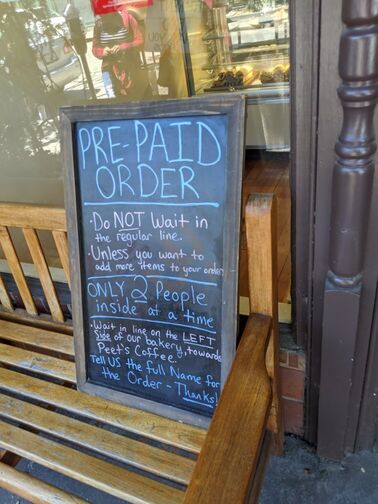 PRE-PAID
ORDER
·Do NOT Wait in
the regular line.
·Unless you want to
add more items to your order
ONLY 2 People
inside at a time
·Wait in line on the LEFT
Side of our bakery, towards
Peet's Coffee.
Tell US the full Name for
the Order - Thanks!